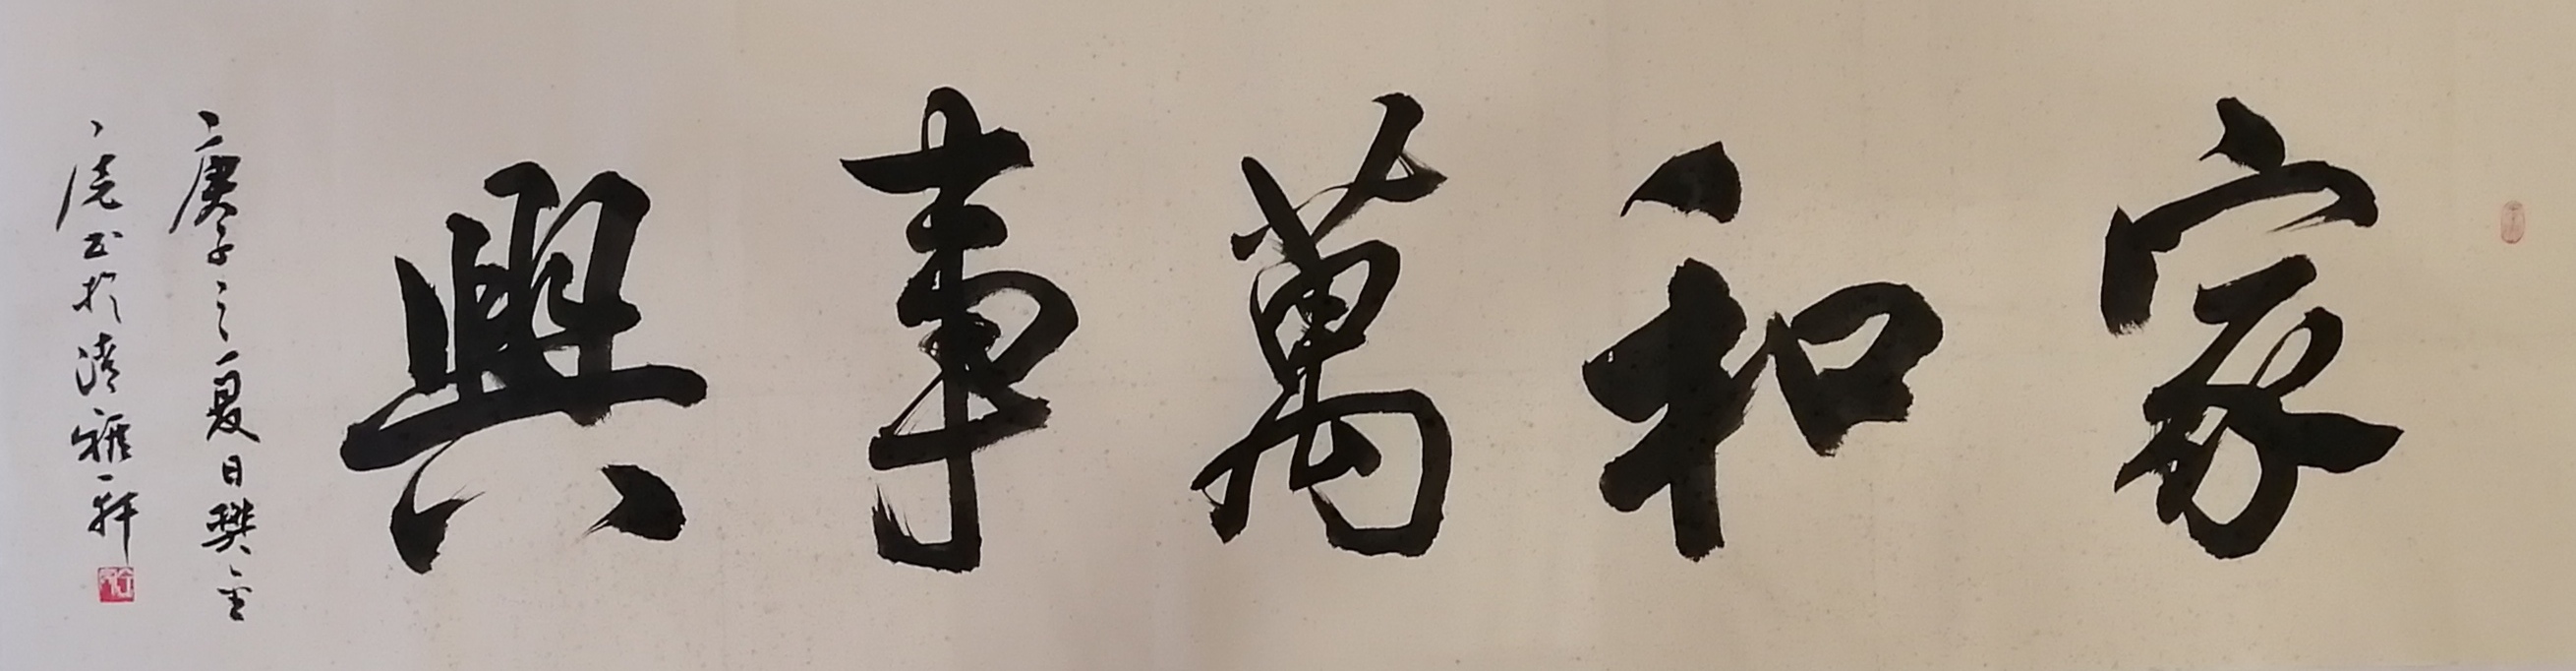 家和萬事興
庚子之夏日樊金
虎书於清雅軒